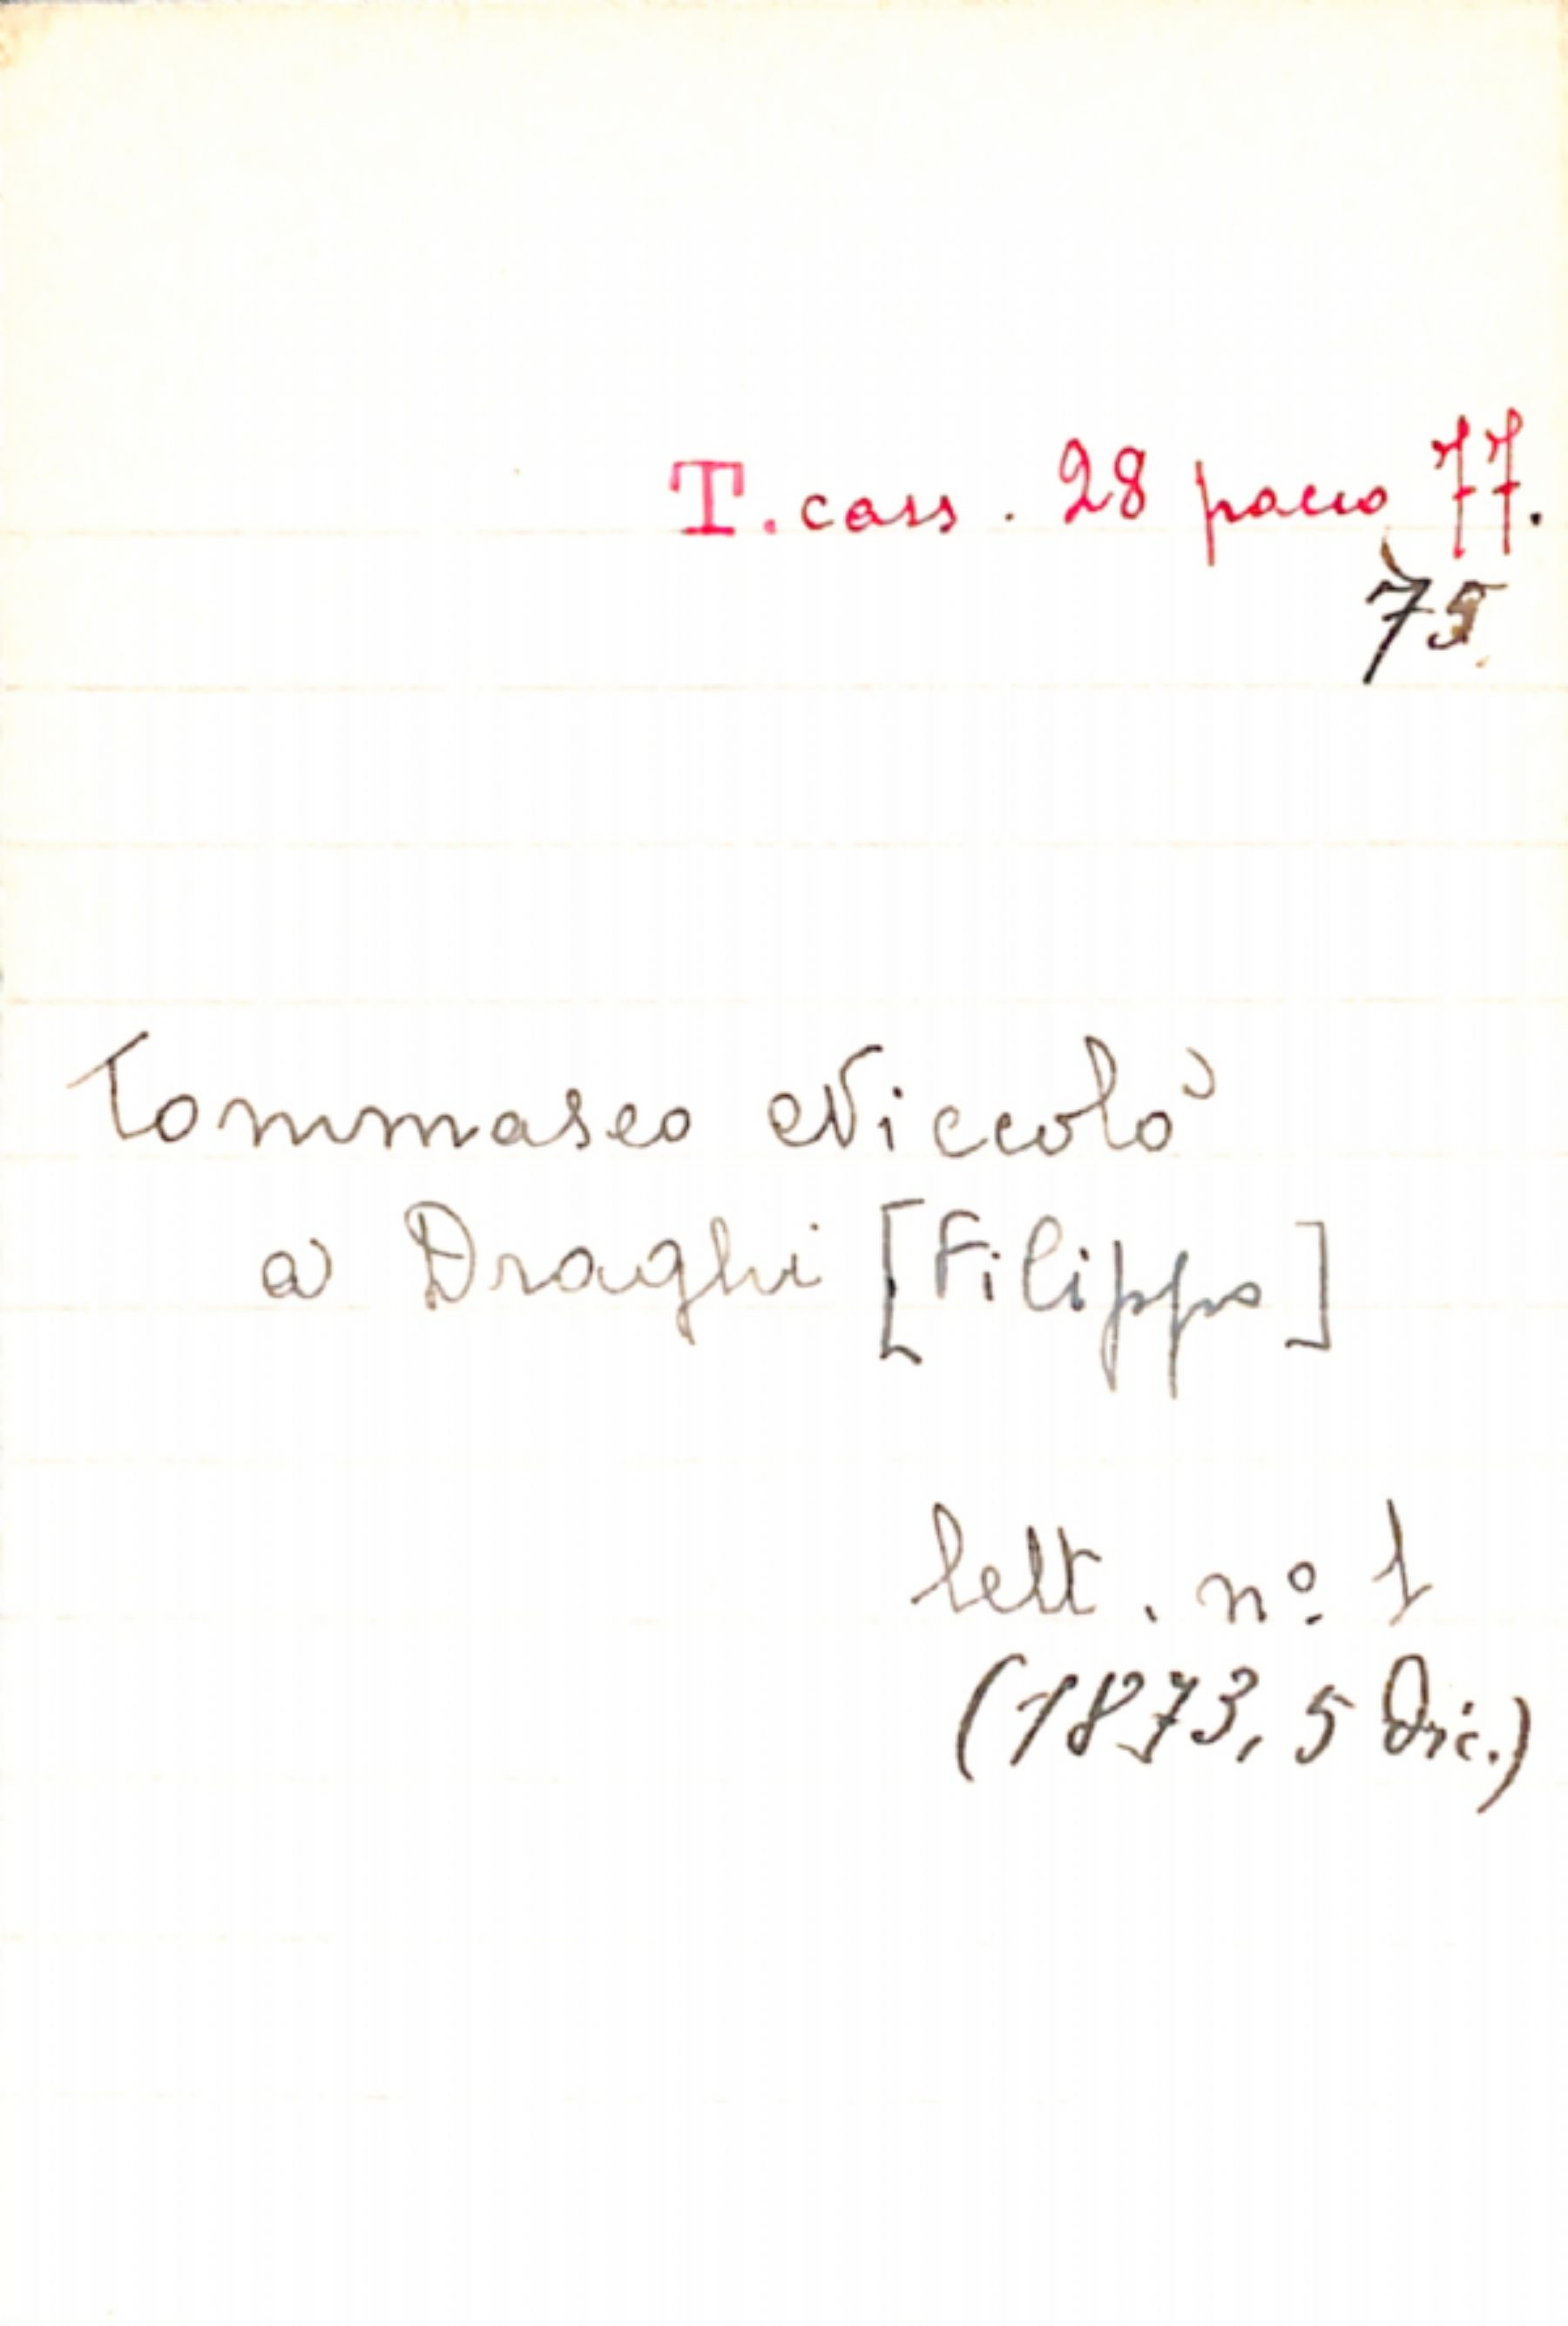 T. cass. 28 pacco 77.
75
Tommaseo Niccolò
a Draghi [Filippo]
lett. nº 1
(1873, 5 Dic.)